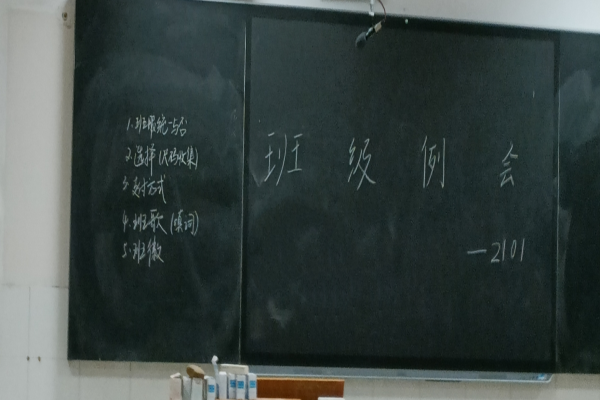 1.班服统一与否
2.选择(代码收集)
3.支付方式
4.班歌(填词)
5.班徽
班级例会
—2101